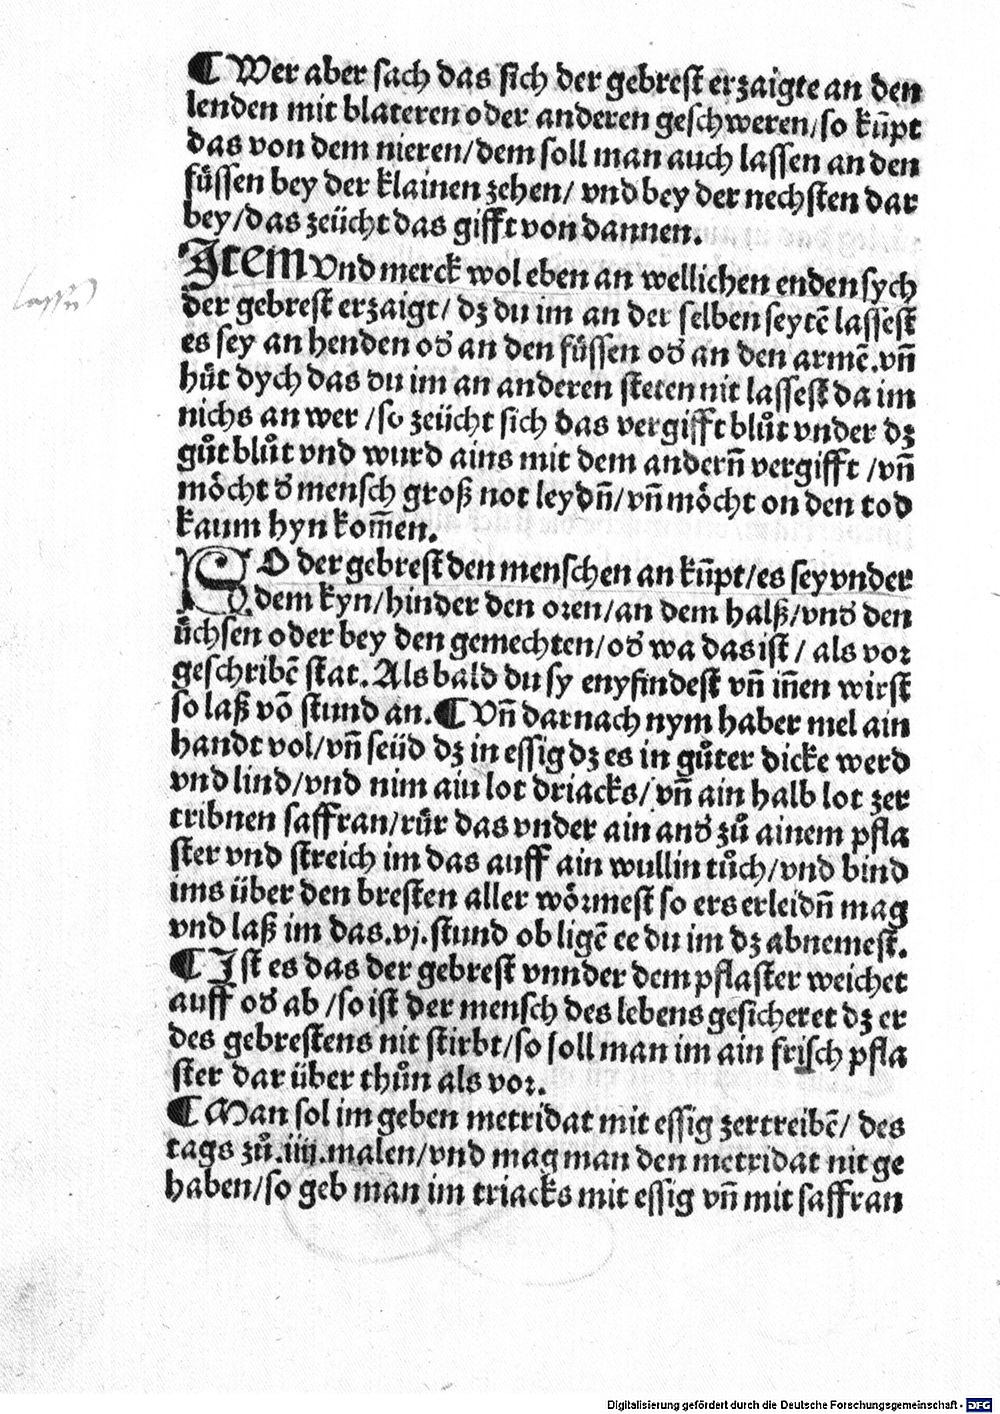 ¶ Wer aber sach das sich der gebrest erzaigte an den
lenden mit blateren oder anderen geschweren/so kūpt
das von dem nieren/dem soll man auch lassen an den
fůssen bey der klainen zehen/ vnd bey der nechsten dar
bey/das zeücht das gifft von dannen.
Item vnd merck wol eben an wellichen enden sych
der gebrest erzaigt/ dz du im an der selben seytē lassest
es sey an henden od' an den fůssen od' an den armē.vn̄
hůt dych das du im an anderen steten nit lassest da im
nichs an wer /so zeücht sich das vergifft blůt vnder dz
gůt blůt vnd wurd ains mit dem andern̄ vergifft /vn̄
möcht d' mensch groß not leydn̄/vn̄ möcht on den tod
kaum hyn kom̄en.
SO der gebrest den menschen an kūpt/es sey vnder
dem kyn/hinder den oꝛen/an dem halß/vnd' den
ůchsen oder bey den gemechten/od' wa das ist / als voꝛ
geschribē stat. Als bald du sy enyfindest vn̄ in̄en wirst
so laß vō stund an. ¶ Vn̄ darnach nym haber mel ain
handt vol/vn̄ seüd dz in essig dz es in gůter dicke werd
vnd lind/vnd nim ain lot driacks/ vn̄ ain halb lot zer
tribnen saffran/růr das vnder ain and' zů ainem pfla
ster vnd streich im das auff ain wullin tůch/vnd bind
ims über den bresten aller wöꝛmest so ers erleidn̄ mag
vnd laß im das.vj.stund ob ligē ee du im dz abnemest.
¶ Ist es das der gebrest vnnder dem pflaster weichet
auff od' ab /so ist der mensch des lebens gesicheret dz er
des gebrestens nit stirbt/so soll man im ain frisch pfla
ster dar über thůn als voꝛ.
¶ Man sol im geben metridat mit essig zertreibē/ des
tags zů.iiij.malen/vnd mag man den metridat nit ge
haben/so geb man im triacks mit essig vn̄ mit saffran
Digitalisierung gefördert durch die Deutsche Forschungsgemeinschaft - DFG